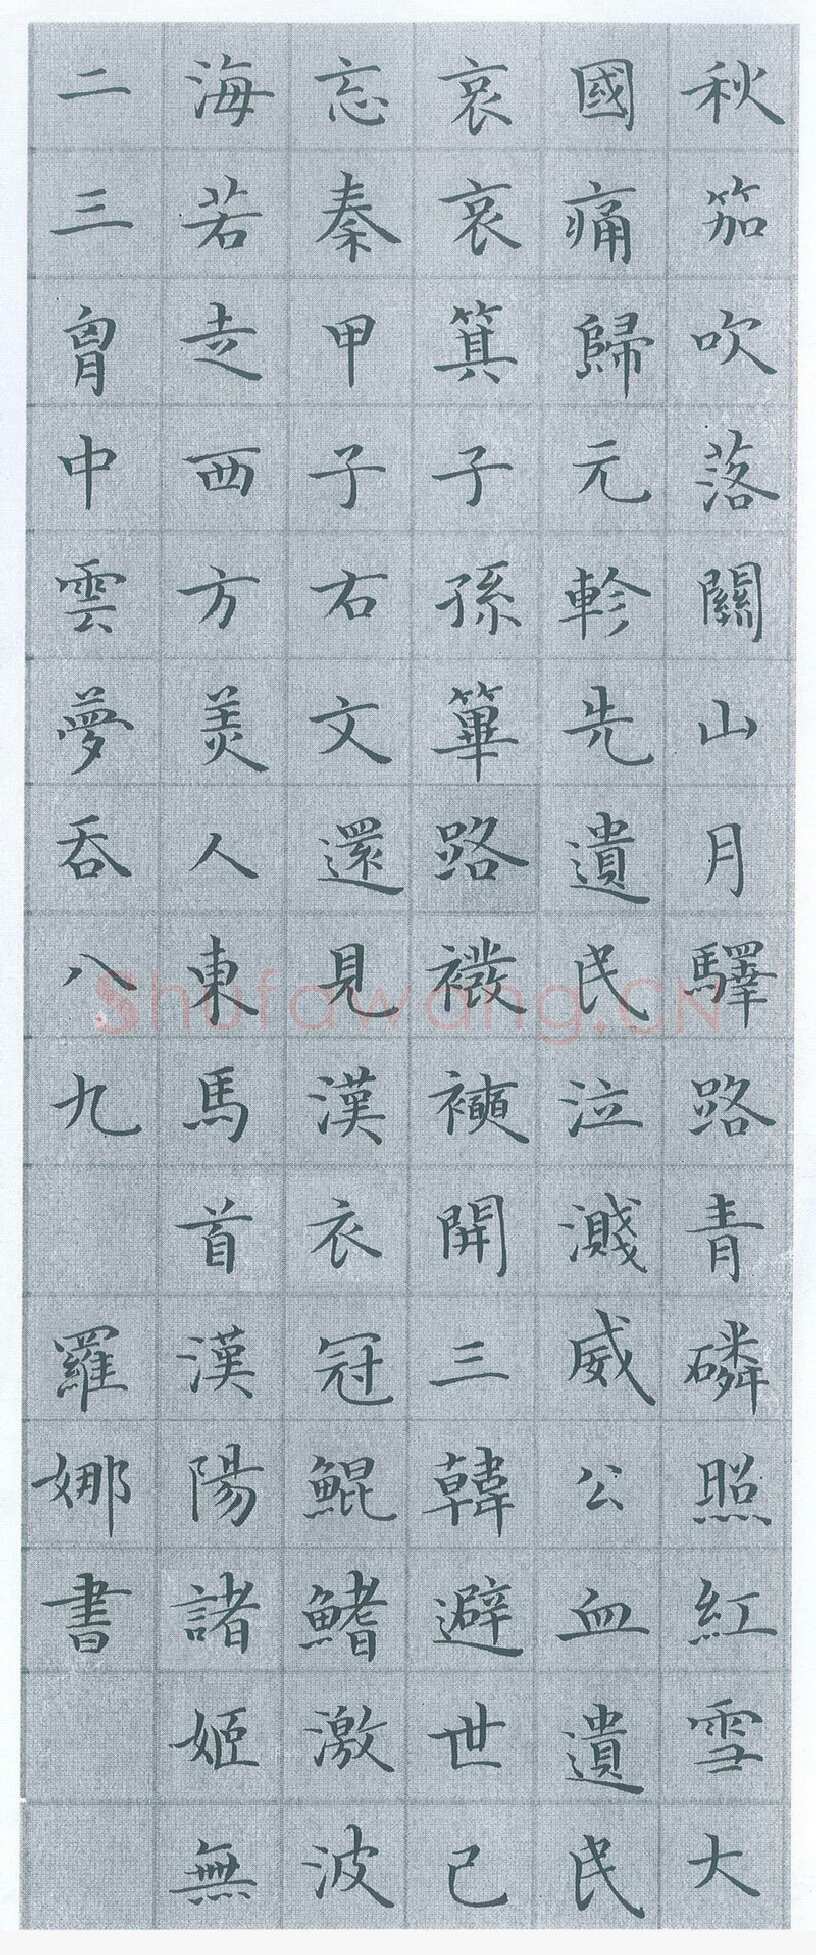 秋笳吹落關山月驛路青磷照紅雪大
國痛歸元軫先遺民泣濺威公血遺民
哀哀箕子孫篳路襏襫開三韓避世已
忘秦甲子右文還見漢衣冠鯤鰭激波
海若走西方美人東馬首漢陽諸姬無
二三胷中雲夢吞八九 羅娜書
Shufawang.CN